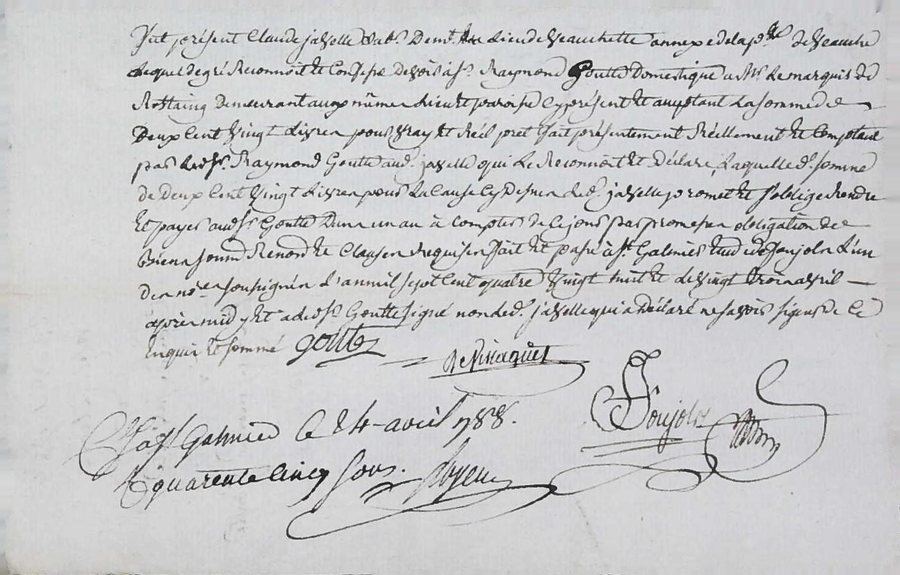 Fut présent Claude javelle hab. demt. au lieu de veauchette annexe de la p.sse de veauche
lequel de gré Reconnoit et Confesse devoir à sr. Raymond Goutte Domestique a Mr. Le marquis de
Rostaing demeurant aux mêmes lieu et paroisse cy présent et acceptant La somme de
Deux Cent vingt Livres pour vray et Réel pret fait présentement Réellement et Comptant
par Ledsr. Raymond Goutte aud. javelle qui Le Reconnoit et déclare, Laquelle de. somme
de Deux Cent vingt Livres pour La Cause cy dessus led. javelle promet et s'oblige Rendre
et payer audsr. Goutte Dans un an à Compter de Ce jour par promesse obligation de
Biens soum. Renond. et Clauses requises fait et passé à st. Galmier Etude de Soujols L'un
des nores. soussignés L'an mil sept Cent quatre vingt huit et Le vingt trois avril
après midy et a Ledsr. Goutte signé non led. javelle qui a Déclaré ne savoir signer de Ce
Enquis et sommé goutte
Soujols
à st Galmier le 24 avril 1788.
R quarente cinq sous.